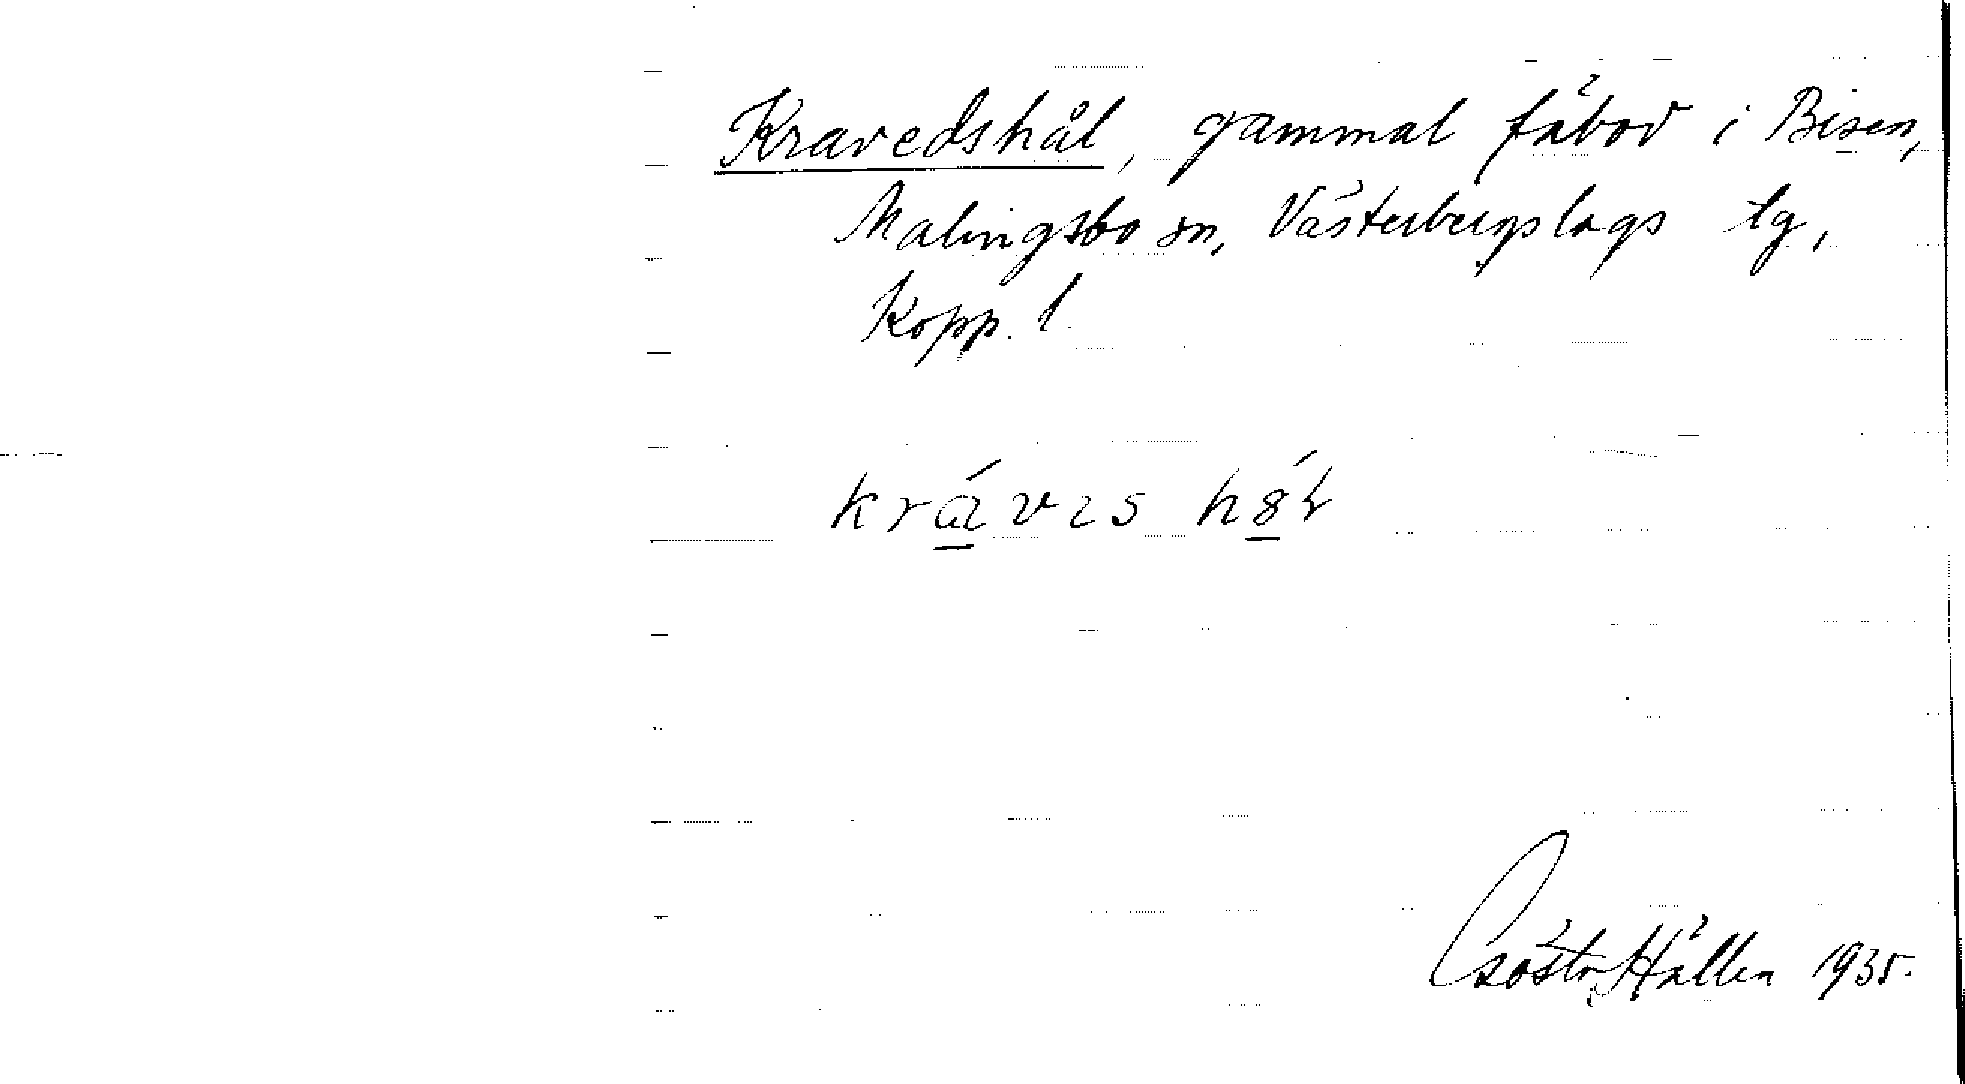 Kravedshål, gammal fäbod i Bisen,
Malingsbo sn, Västerbergslags tg,
Kopp. l
krávıs hȣ́ł
Gösta Hällen 1935.